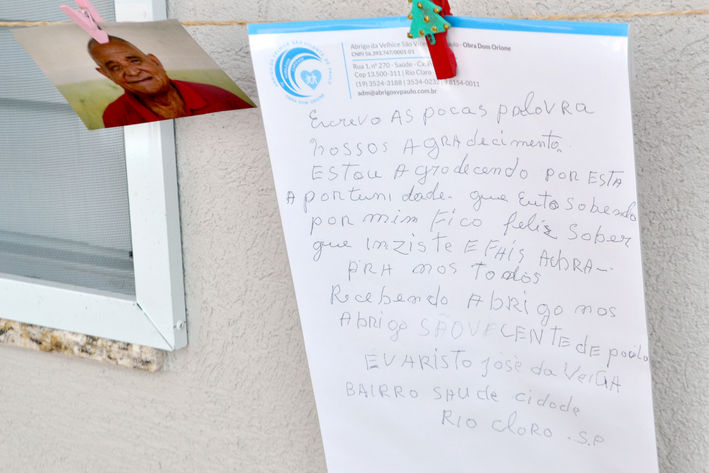 Abrigo da Velhice São Vicente de Paulo - Obra Dom Orione
CNPJ 56.393.747/0001-01
Rua 1, nº 270 - Saúde
Cep 13.500-311 | Rio Claro
(19) 3524-3188 | 3524-0232
adm@abrigosvpaulo.com.br
Escrevo AS pocas palavra
nossos AgRAdecimento
ESTOU Agradecendo POR ESTA
A portunidade. que Euto Sabendo
por mim Fico feliz Saber
que inziste E FAIS AOBRA-
PRA nos Todos
Recebendo Abrigo nos
Abrigo SÃO VECENTE de paulo
EVARISTO jose da VeigA
BAIRRO SAUde cidade
RIO CLARO .S.P